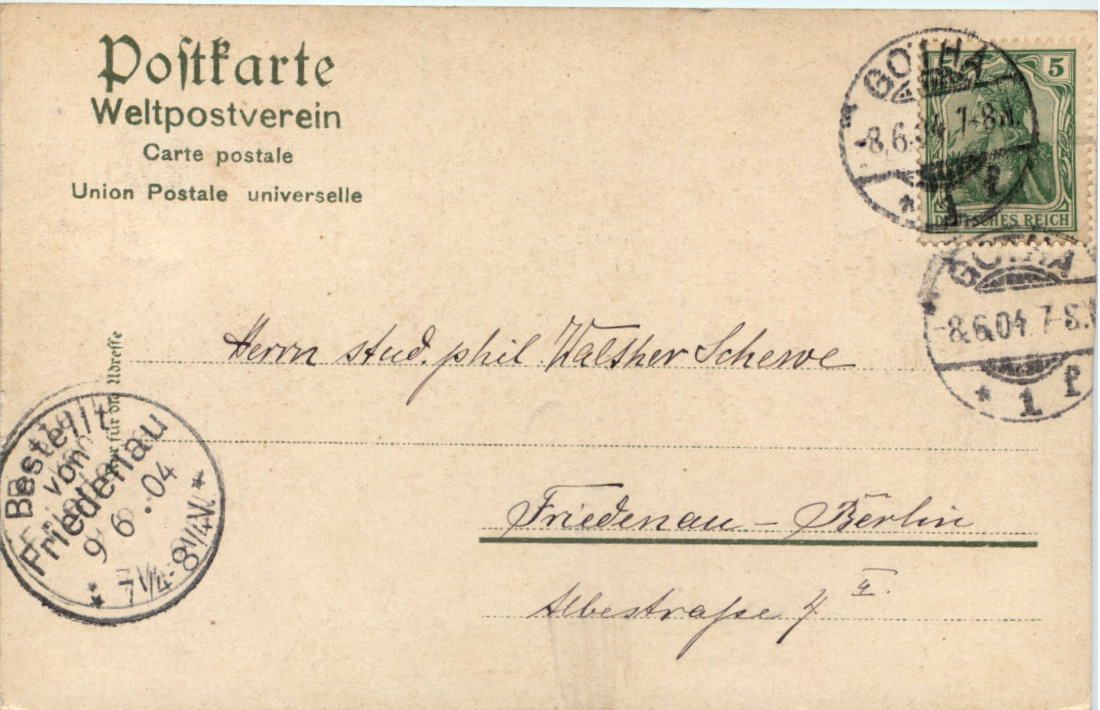 Postkarte
Weltpostverein
Carte postale
Union Postale universelle
5
DEUTSCHES REICH
GOTHA
-8.6.04.7-8N.
* 1 f
GOTHA
-8.6.04.7-8.N
* 1 f
Nur für die Adresse
Herrn stud. phil. Walther Schewe
Friedenau - Berlin
Albestraße 4 II.
Bestellt
von
Friedenau
9 6 .04
* 7 1/4-8 1/4V. *